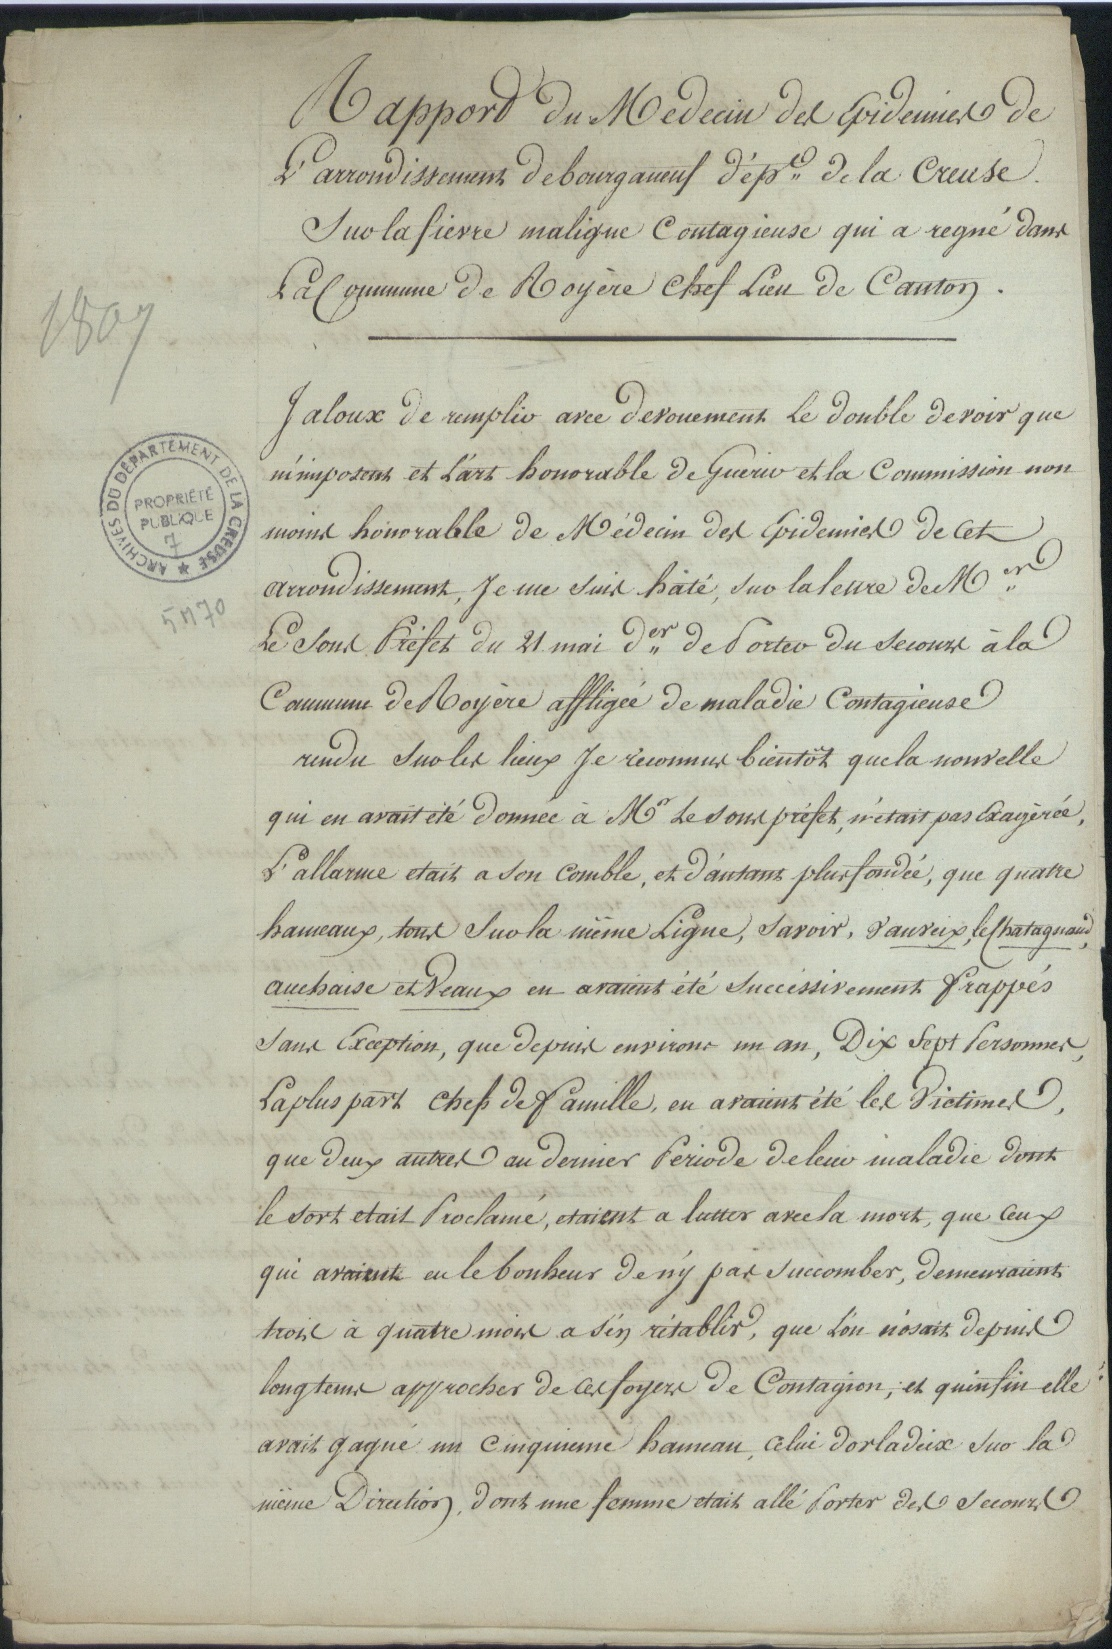 Rapport du Medecin des Epidemies de
L'arrondissement de bourganeuf dép.t de la Creuse.
Sur la fievre maligne Contagieuse qui a regné dans
La Commune de Royère Chef Lieu de Canton.
1807
Jaloux de remplir avec devouement Le double devoir que
m'imposent et L'art honorable de Guérir et la Commission non
moins honorable de Médecin des Epidemies de Cet
arrondissement, Je me suis hâté, sur la lettre de M.r
Le Sous Préfet du 21 mai d.er de Porter du secours à la
Commune de Royère affligée de maladie Contagieuse
rendu sur les lieux Je reconnus bientôt que la nouvelle
qui en avait été donnée à M.r Le sous préfet, n'était pas Exagérée,
L'allarme etait a son comble, et d'autant plus fondée, que quatre
hameaux, tous sur la même Ligne, savoir, Vauveix, le Chatagnaud,
auchaise et Veaux en avaient été successivement frappés
sans Exception, que depuis environs un an, Dix Sept Personnes,
La plus part chefs de famille, en avaient été les Victimes,
que deux autres au dernier Période de leur maladie dont
le sort etait Proclamé, etaient a lutter avec la mort, que ceux
qui avaient eu le bonheur de n'y pas succomber, demeuraient
trois à quatre mois a s'en rétablir, que l'on n'osait depuis
longtems approcher de ces foyers de Contagion, et qu'enfin elle
avait gagné un cinquieme hameau, celui d'orladeix sur la
même Direction, dont une femme etait allé Porter des secours
ARCHIVES DU DÉPARTEMENT DE LA CREUSE
PROPRIÉTÉ
PUBLIQUE
7
5M70